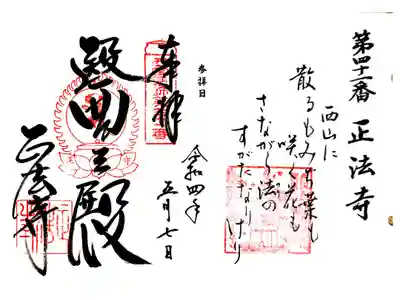 第四十一番 正法寺
西山に
散るもみち葉も
咲く花も
さながら法の
すがたなりけり
参拝日
令和四年
五月七日
奉拝
正法寺